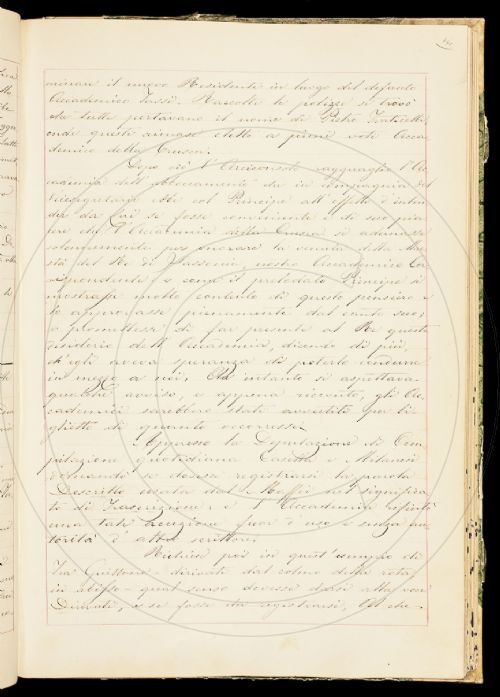 minare il nuovo Residente in luogo del defunto
Accademico Tassi. Raccolte le polizze si trovò
che tutte portavano il nome di Pietro Fraticelli,
onde questi rimase eletto a pieni voti Acca-
demico della Crusca.
Dopo ciò l'Arciconsolo ragguagliò l'Ac-
cademia dell'abboccamento che in compagnia del
Vicesegretario ebbe col Principe all'effetto d'inten-
der da Lui se fosse conveniente e di suo pia-
cere che l'Accademia della Crusca si adunasse
solennemente per onorare la venuta della Mae-
stà del Re di Sassonia, nostro Accademico Cor-
rispondente: e come il prelodato Principe si
mostrasse molto contento di questo pensiero e
lo approvasse pienamente dal canto suo;
e promettesse di far presente al Re questo
desiderio dell'Accademia, dicendo di più,
ch'egli aveva speranza di poterlo condurre
in mezzo a noi. Che intanto si aspettava
qualche avviso, e appena ricevuto, gli Ac-
cademici sarebbero stati avvertiti per bi-
glietto di quanto occorresse.
Appresso la Deputazione di Com-
pilazione quotidiana Casella e Milanesi
domandò se dovesse registrarsi la parola
Descritto usata dal Maffei nel significa-
to di Trascrizione: e l'Accademia rifiutò
una tale accezione fuor d'uso e senza au-
torità d'altri scrittori.
Richiese poi in quest'esempio di
Fra Guittone - dirivati dal colmo della rota,
in abisso - qual senso dovesse darsi alla voce
Dirivati, e se fosse da registrarsi. Al che